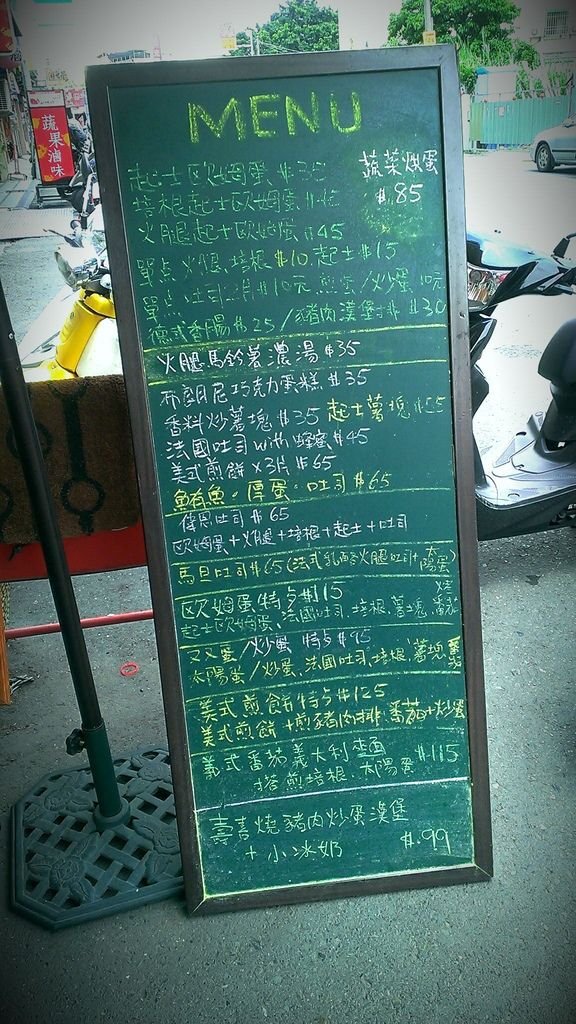 蔬果滷味
MENU
起士歐姆蛋 $35
蔬菜烘蛋
$.85
培根起士歐姆蛋 $45
火腿起士歐姆蛋 $45
單點 火腿、培根 $10、起士 $15
單點、吐司2片 $10元 煎蛋/炒蛋 10元
德式香腸 $25 / 豬肉漢堡排 $30
火腿馬鈴薯濃湯 $35
布朗尼巧克力蛋糕 $35
香料炒薯塊 $35 起士薯塊 $55
法國吐司 with 蜂蜜 $45
美式煎餅 x3片 $65
鮪魚・厚蛋・吐司 $65
傳思吐司 $65
歐姆蛋+火腿+培根+起士+吐司
馬旦吐司 $65 (法式乳酪火腿吐司+太陽蛋)
歐姆蛋特点 $115
起士歐姆蛋、法國吐司、培根、薯塊、烤番茄
叉叉蛋/炒蛋 特点 $95
太陽蛋/炒蛋、法國吐司、培根、薯塊
美式煎餅特点 $125
美式煎餅+煎豬肉排、番茄+炒蛋
義式番茄義大利麵 $115
搭煎培根、太陽蛋
壽喜燒豬肉炒蛋漢堡
+ 小冰奶 $.99